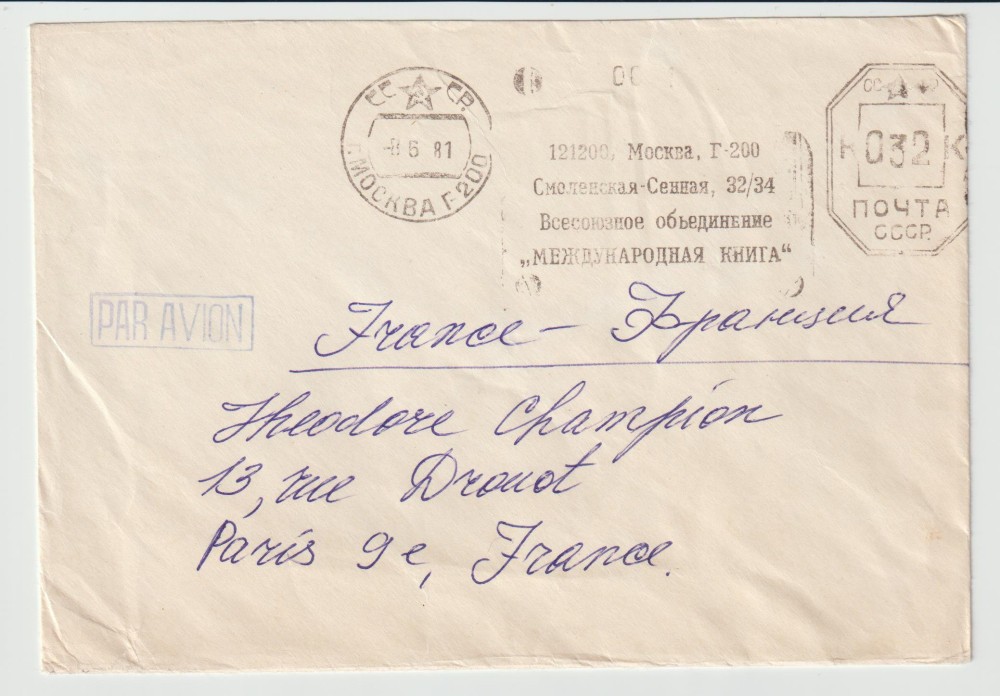 СС СР
-8 6 81
Г. МОСКВА Г-200
121200, Москва, Г-200
Смоленская-Сенная, 32/34
Всесоюзное объединение
„МЕЖДУНАРОДНАЯ КНИГА“
К 032 К
ПОЧТА
СССР
PAR AVION
France – Франция
Theodore Champion
13, rue Drouot
Paris 9e, France.